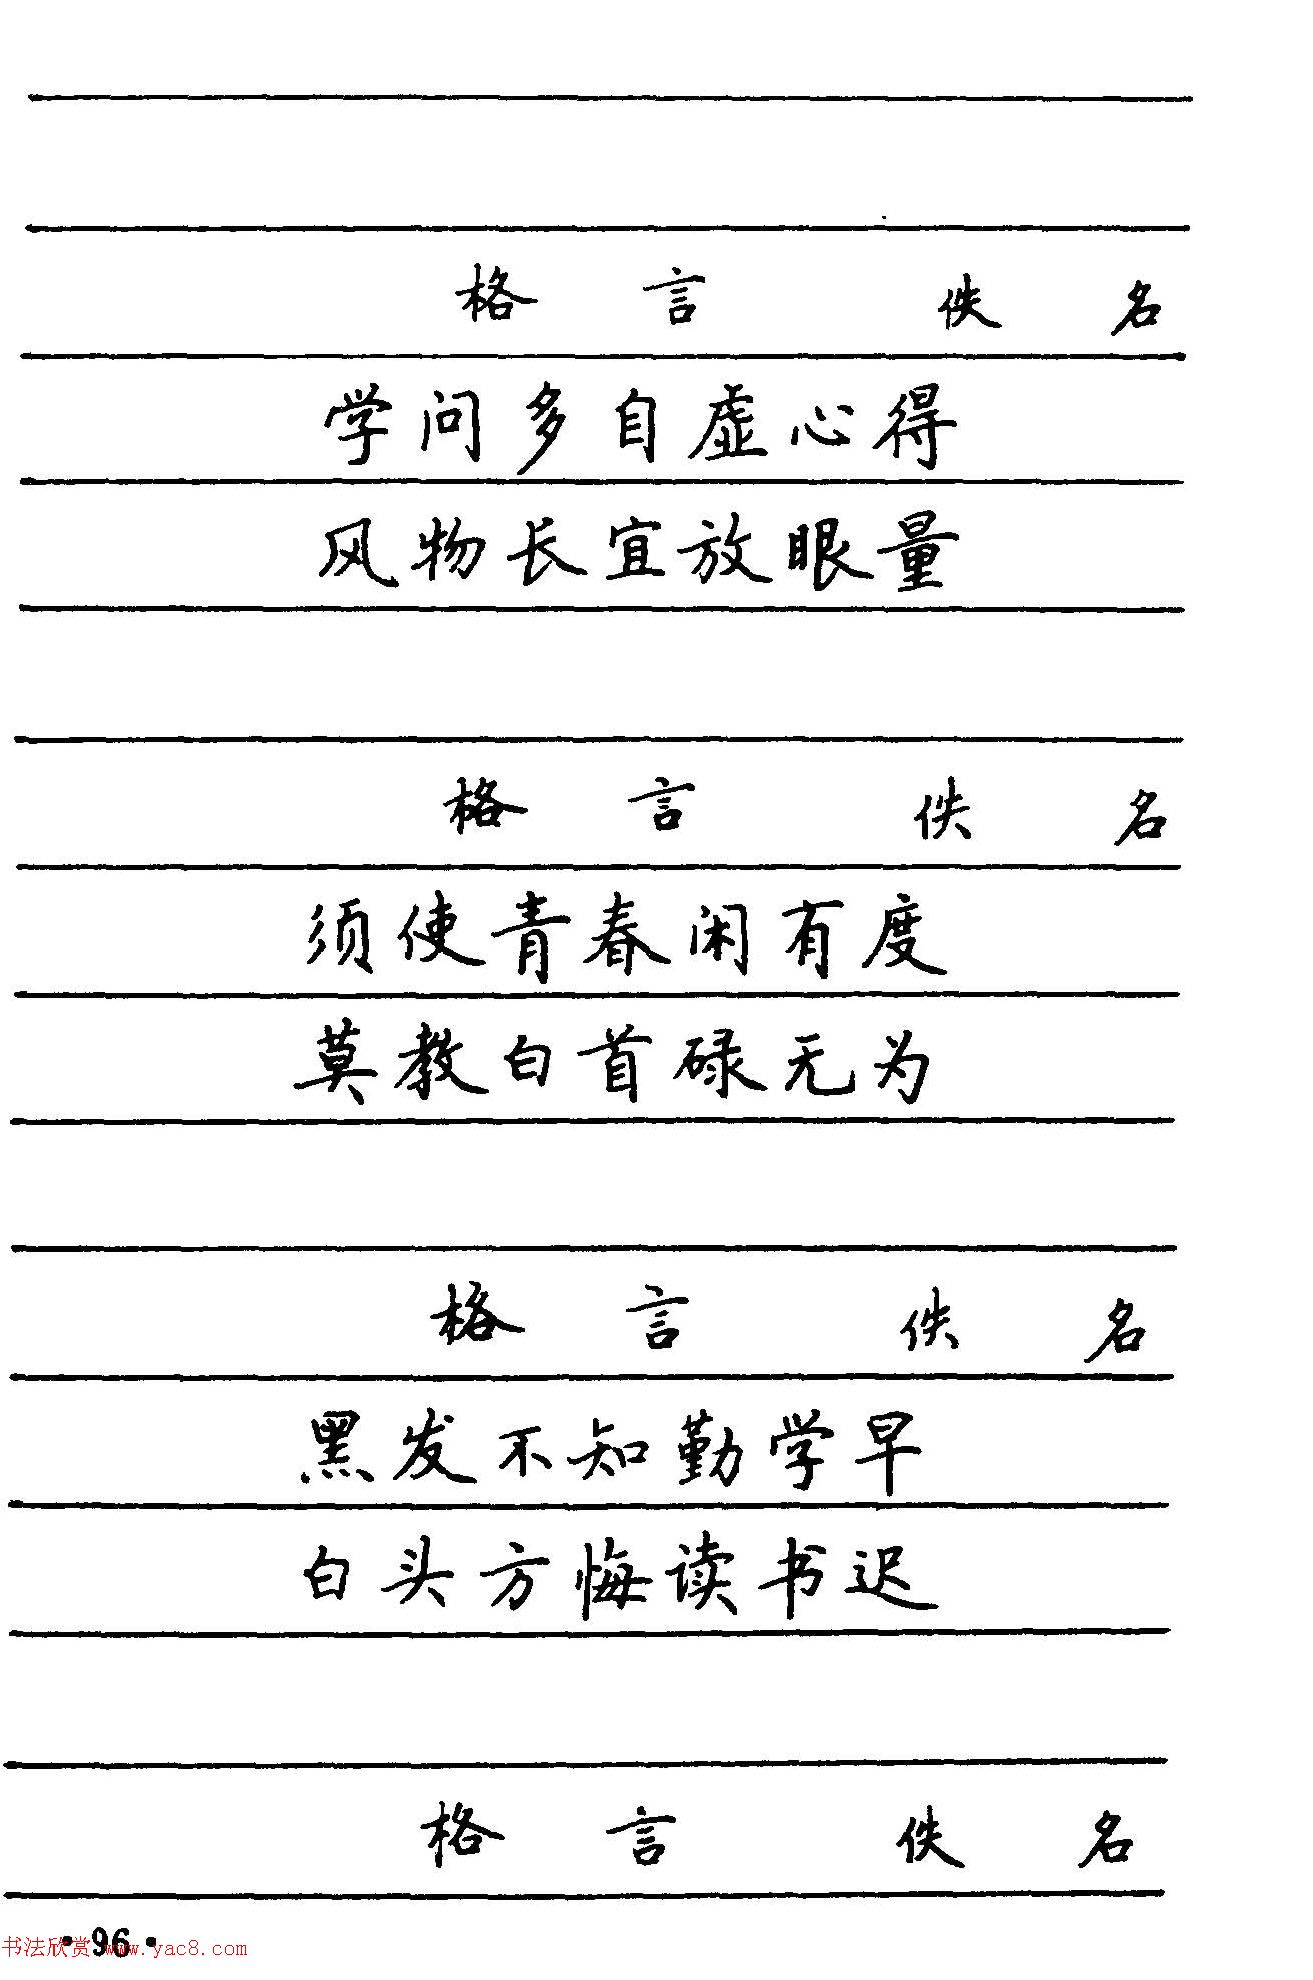 格言 佚名
学问多自虚心得
风物长宜放眼量
格言 佚名
须使青春闲有度
莫教白首碌无为
格言 佚名
黑发不知勤学早
白头方悔读书迟
格言 佚名
·96·
书法欣赏 www.yac8.com